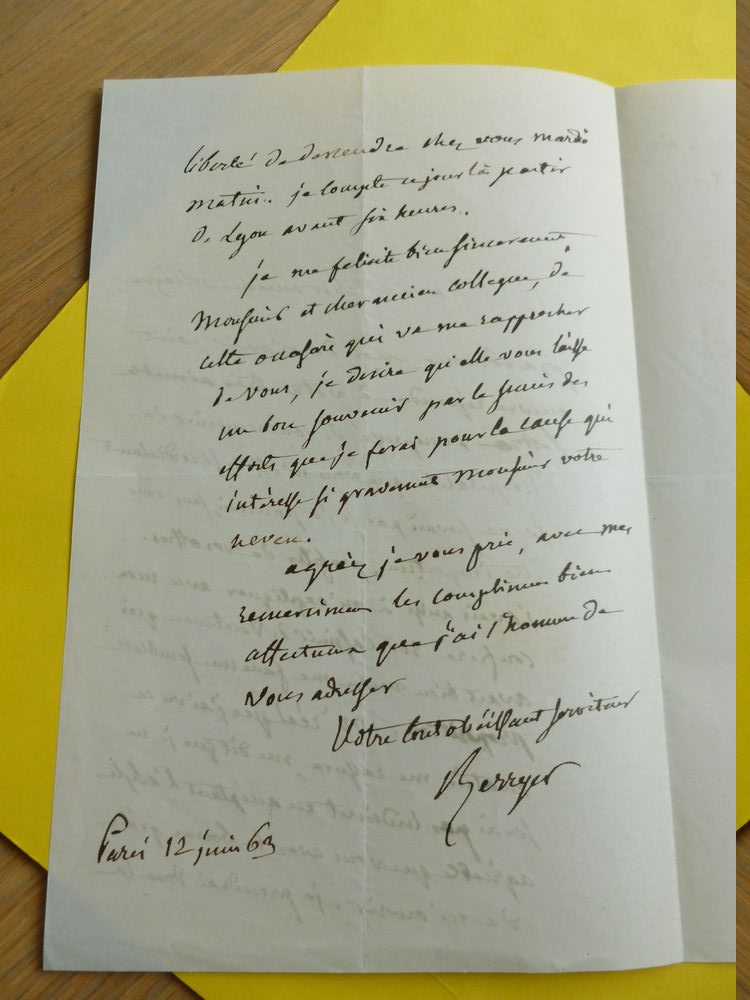 liberté de descendre chez vous mardi
matin. je compte ce jour là partir
de Lyon avant six heures.
je me felicite bien sincerement
Monsieur et cher ancien collegue, de
cette occasion qui va me rapprocher
de vous, je desire qu'elle vous laisse
un bon souvenir par le succès des
efforts que je ferai pour la cause qui
intéresse si gravement Monsieur votre
neveu.
agréez je vous prie, avec mes
remerciemens les complimens bien
affectueux que j'ai l'honneur de
vous adresser
Votre tout obéissant serviteur
Berryer
Paris 12 juin 63